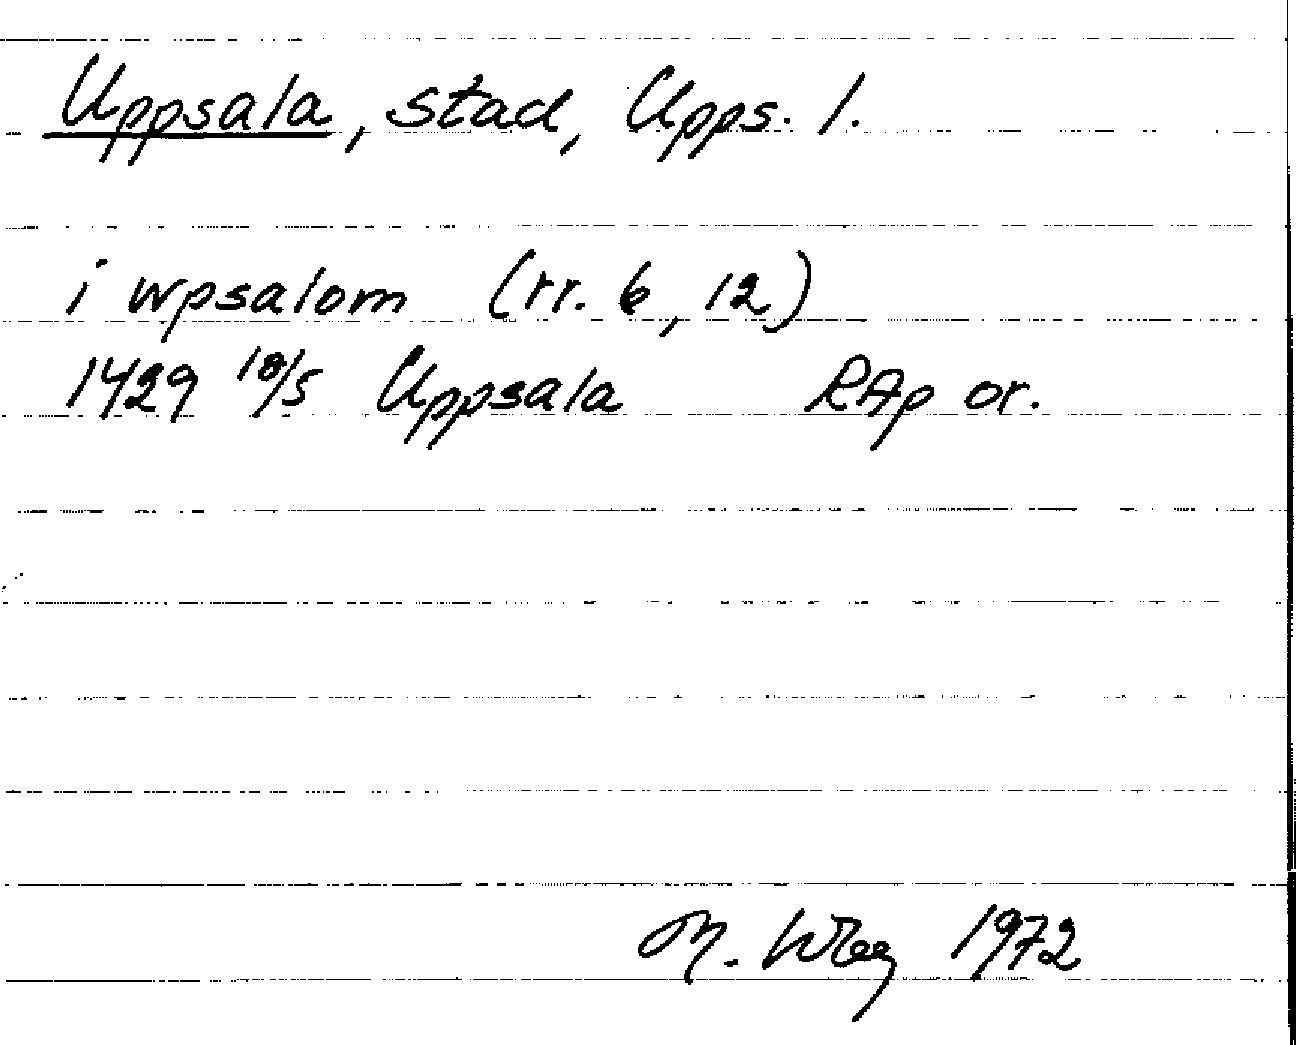 Uppsala, stad, Upps. l.
i wpsalom (rr. 6, 12)
1429 18/5 Uppsala RAp or.
M. Wreg 1972